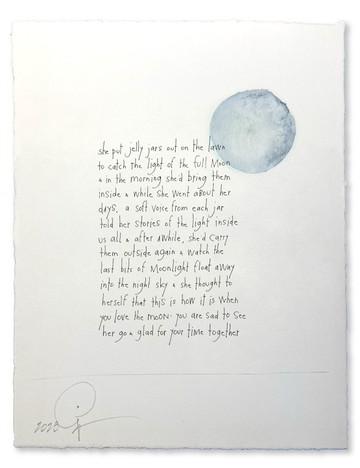 she put jelly jars out on the lawn
to catch the light of the full Moon
& in the morning she'd bring them
inside & while she went about her
days, a soft voice from each jar
told her stories of the light inside
us all & after awhile, she'd carry
them outside again & watch the
last bits of Moonlight float away
into the night sky & she thought to
herself that this is how it is when
you love the moon. you are sad to see
her go & glad for your time together
2023